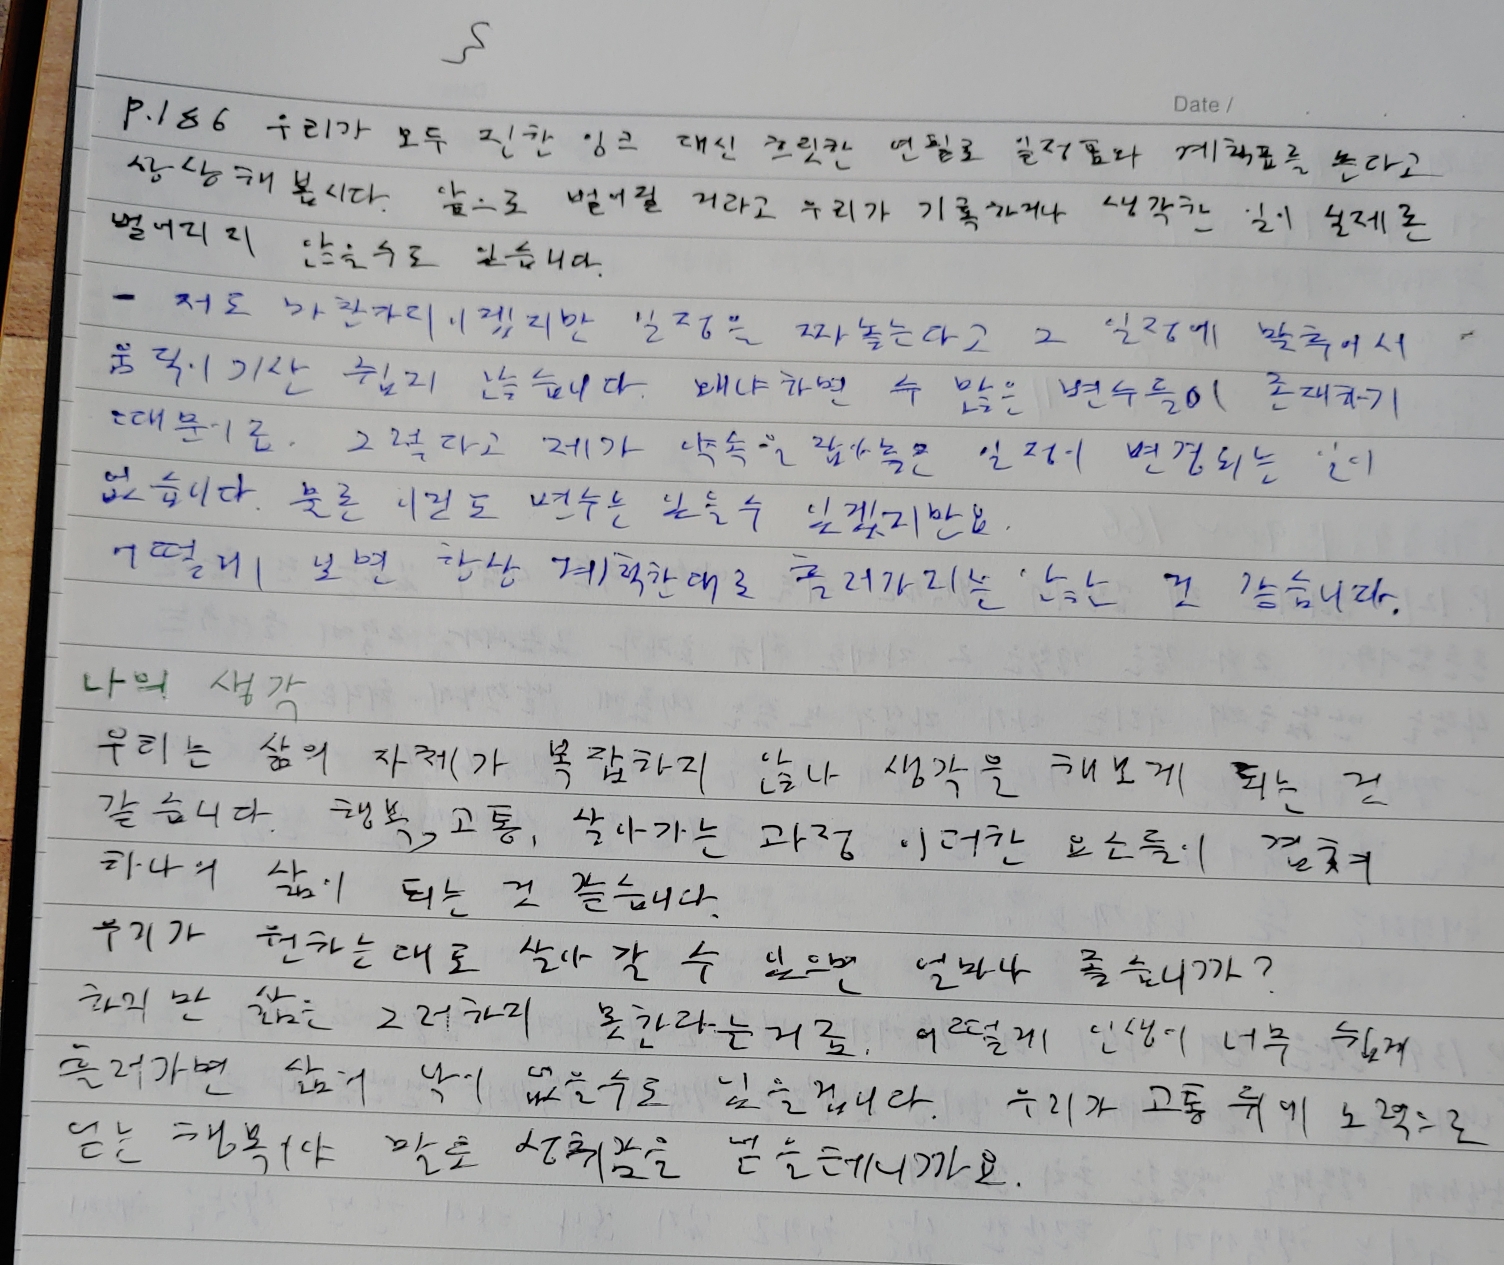 Date /
P.186 우리가 모두 진한 잉크 대신 흐릿한 연필로 일정표와 계획표를 쓴다고
상상해 봅시다. 앞으로 벌어질 거라고 우리가 기록하거나 생각한 일이 실제론
벌어지지 않을수도 있습니다.
- 저도 마찬가지이겠지만 일정을 짜놓는다고 그 일정에 맞추어서
움직이기산 쉽지 않습니다. 왜냐하면 수 많은 변수들이 존재하기
때문이죠. 그렇다고 제가 약속을 잡아놓은 일정이 변경되는 일이
없습니다. 물론 이것도 변수는 있을수 있겠지만요.
어떻게 보면 항상 계획한대로 흘러가지는 않는 것 같습니다.
나의 생각
우리는 삶의 자체가 복잡하지 않나 생각을 해보게 되는 건
같습니다. 행복, 고통, 살아가는 과정 이러한 요소들이 겹쳐
하나의 삶이 되는 것 같습니다.
우리가 원하는대로 살아 갈 수 있으면 얼마나 좋습니까?
하지만 삶은 그러하지 못한다는거죠. 어떻게 인생이 너무 쉽게
흘러가면 삶의 낙이 없을수도 있을겁니다. 우리가 고통 뒤에 노력으로
얻는 행복이야 말로 성취감을 얻을테니까요.